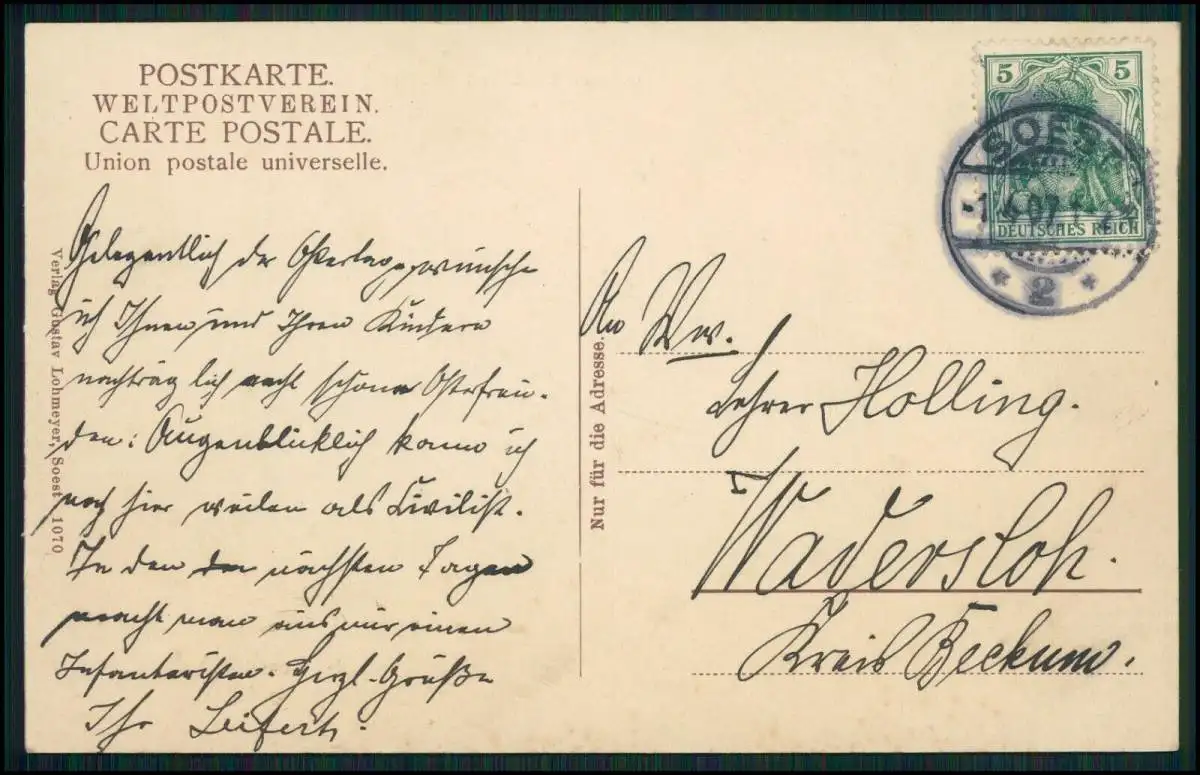 POSTKARTE.
WELTPOSTVEREIN.
CARTE POSTALE.
Union postale universelle.
Gelegentlich der Ostertage wünsche
ich Ihnen und Ihren Kindern
nachträglich recht schöne Osterfreu-
den: Augenblicklich kann ich
noch hier weilen als Civilist.
In den nächsten Tagen
macht man aus mir einen
Infanteristen. Herzl. Grüße
Ihr Seifert.
Verlag Gustav Lohmeyer, Soest 1070
Nur für die Adresse.
An Ww.
Lehrer Holling.
Wadersloh.
Kreis Beckum.
5 5
DEUTSCHES REICH
SOEST
07
* 2 *